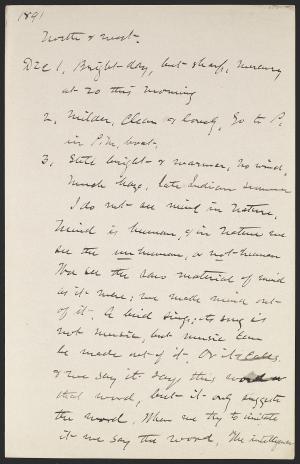 1891
North & west.
Dec 1, Bright day, but sharp, mercury
at 20 this morning
2, Milder, Clear & lovely, Go to P.
in P.M. boat.
3, Still bright & warmer, no wind,
much haze, late Indian summer
I do not see mind in Nature,
Mind is human, & in nature we
see the unhuman, or not-human
You see the raw material of mind
as it were; we make mind out
of it. A bird sings; its song is
not music, but music can
be made out of it. Or it calls
& we say it says this word or
that word, but it only suggests
the word. When we try to imitate
it we say the word. The intelligence